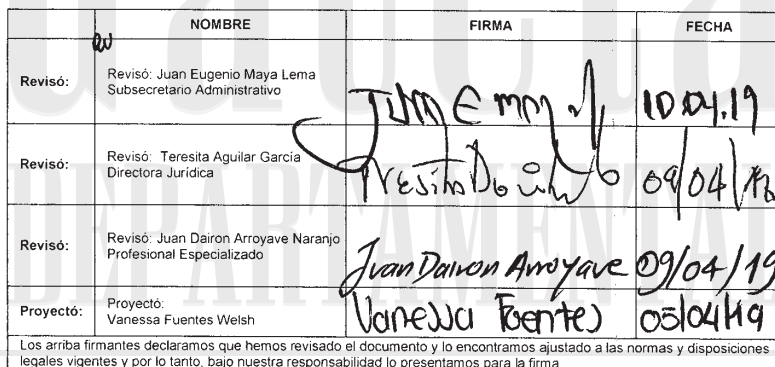 NOMBRE FIRMA FECHA
Revisó: Revisó: Juan Eugenio Maya Lema
Subsecretario Administrativo
10.04.19
Revisó: Revisó: Teresita Aguilar García
Directora Jurídica
09/04/
Revisó: Revisó: Juan Dairon Arroyave Naranjo
Profesional Especializado
Juan Dairon Arroyave 09/04/19
Proyectó: Proyectó:
Vanessa Fuentes Welsh
Vanessa Fuentes 05/04/19
Los arriba firmantes declaramos que hemos revisado el documento y lo encontramos ajustado a las normas y disposiciones
legales vigentes y por lo tanto, bajo nuestra responsabilidad lo presentamos para la firma
DEPARTAMENTAL